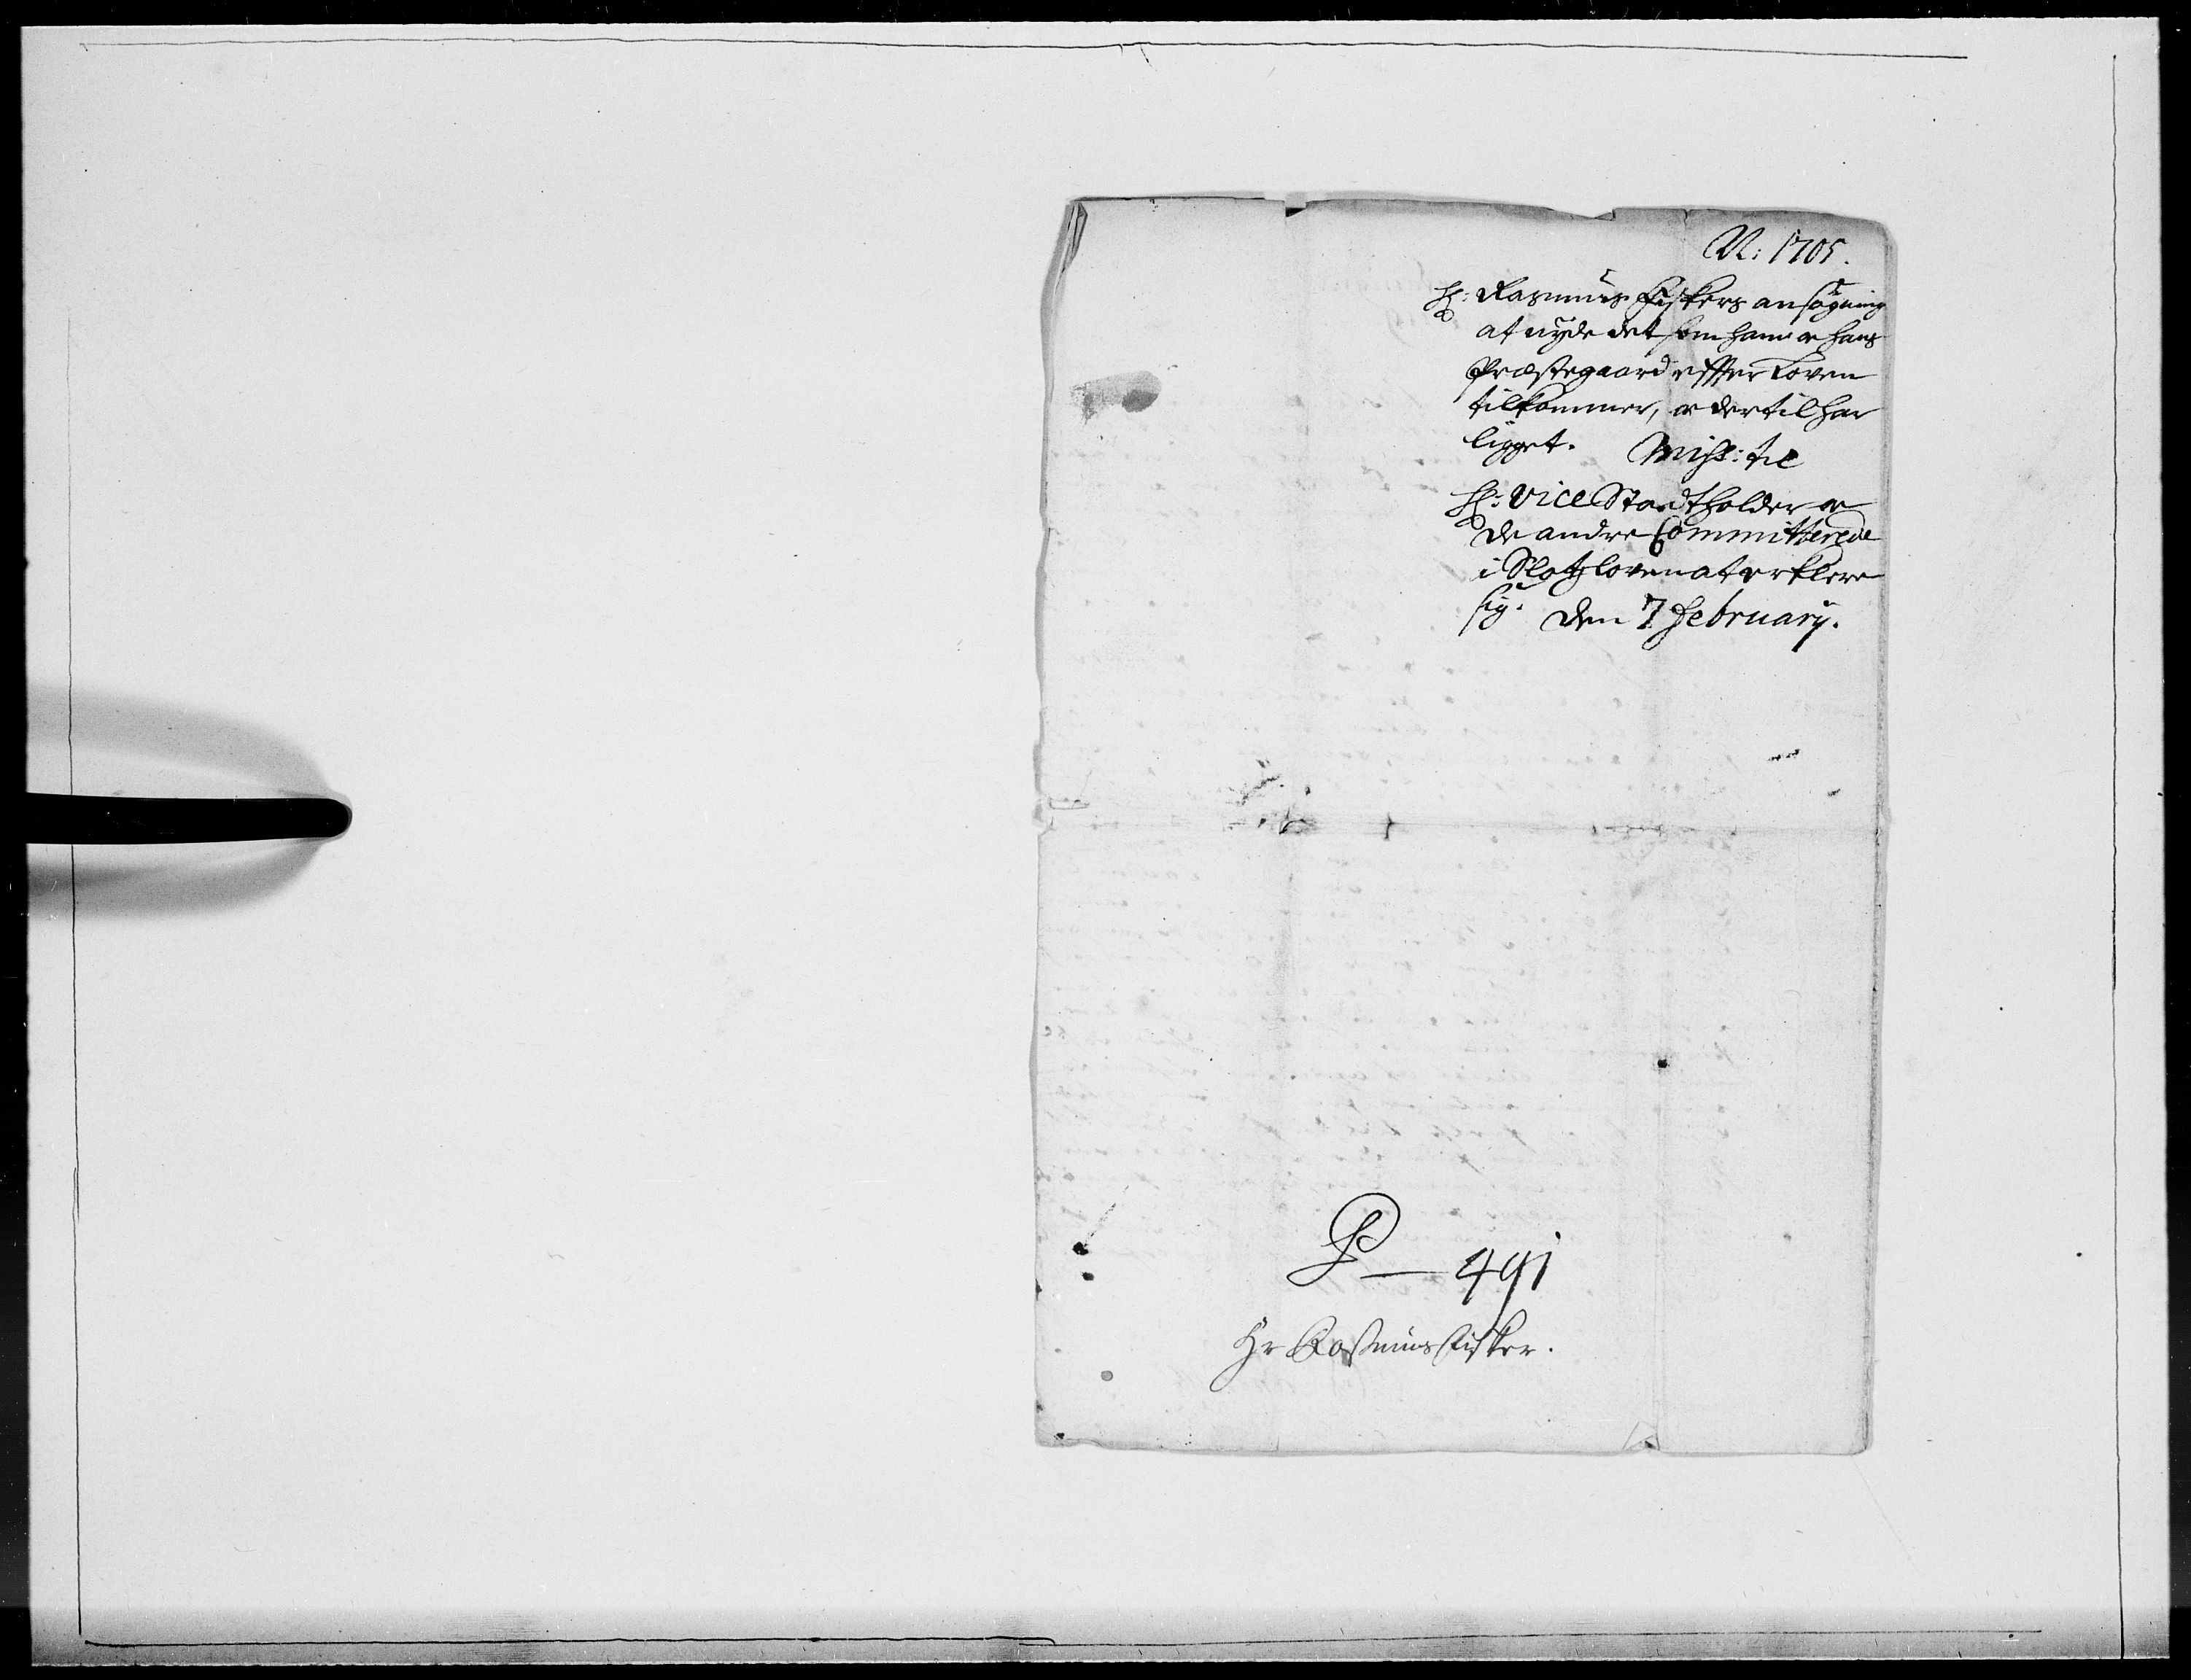 N: 1705.
H: Rasmus Fiskers ansögning
at nyde det som ham oc hans
Præstegaard effter Loven
tilkommer, oc dertil har
ligget. Miss: til
H: Vice Stadtholder oc
de andre Committerede
i Slotzloven at erklere
sig. Den 7 February.
P — 491
Hr Rasmus Fisker.